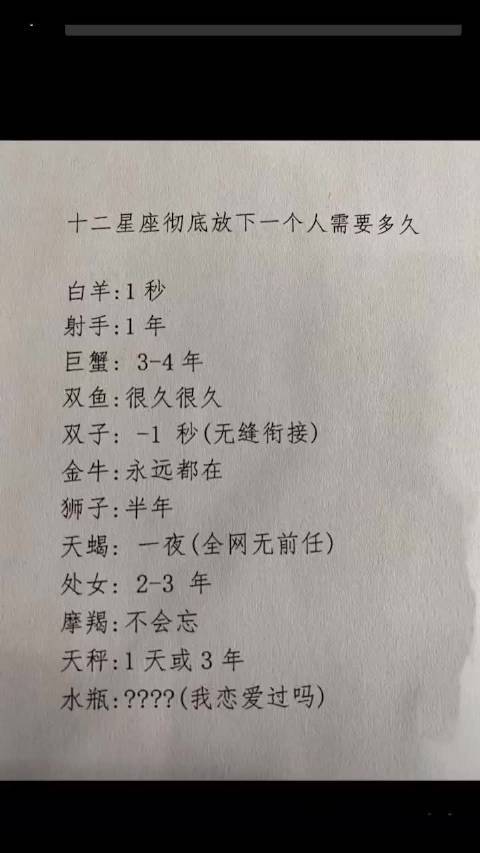 十二星座彻底放下一个人需要多久
白羊:1秒
射手:1年
巨蟹: 3-4年
双鱼:很久很久
双子: -1 秒(无缝衔接)
金牛:永远都在
狮子:半年
天蝎: 一夜(全网无前任)
处女: 2-3 年
摩羯:不会忘
天秤:1天或3年
水瓶:????(我恋爱过吗)